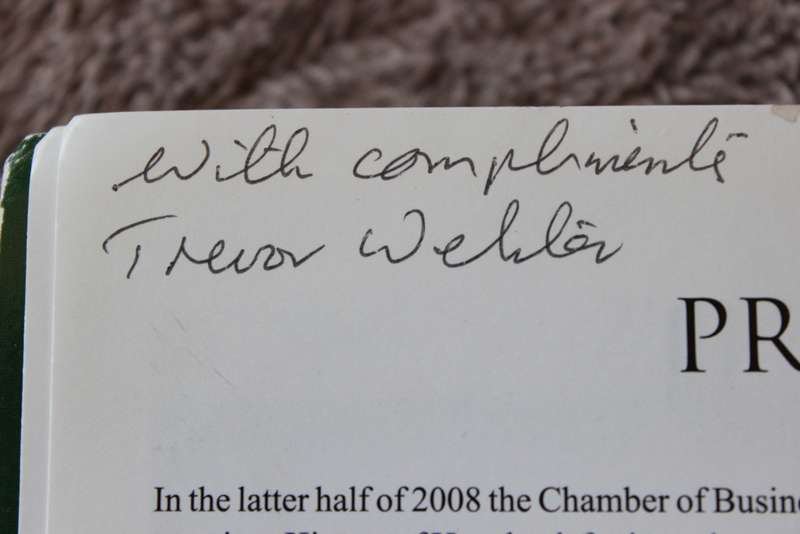 with compliments
Trevor Webster
PR
In the latter half of 2008 the Chamber of Busine